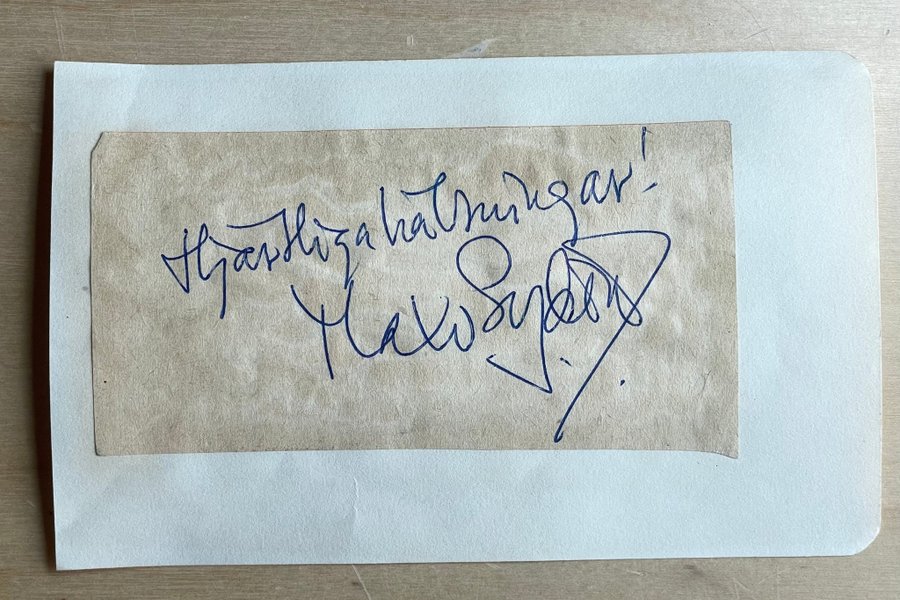 Hjärtliga hälsningar!
Max v Sydow